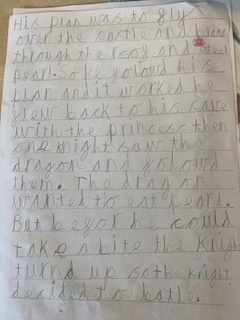 His plan was to fly
over the castle and
through the roof and steel
pearl. So he folowd his
plan and it worked he
flew back to his cave
with the princess then
one knight saw the
dragon and folowd
them. The dragon
wanted to eat pearl.
But befor he could
take a bite the knigh
turnd up so the knight
decided to batle.